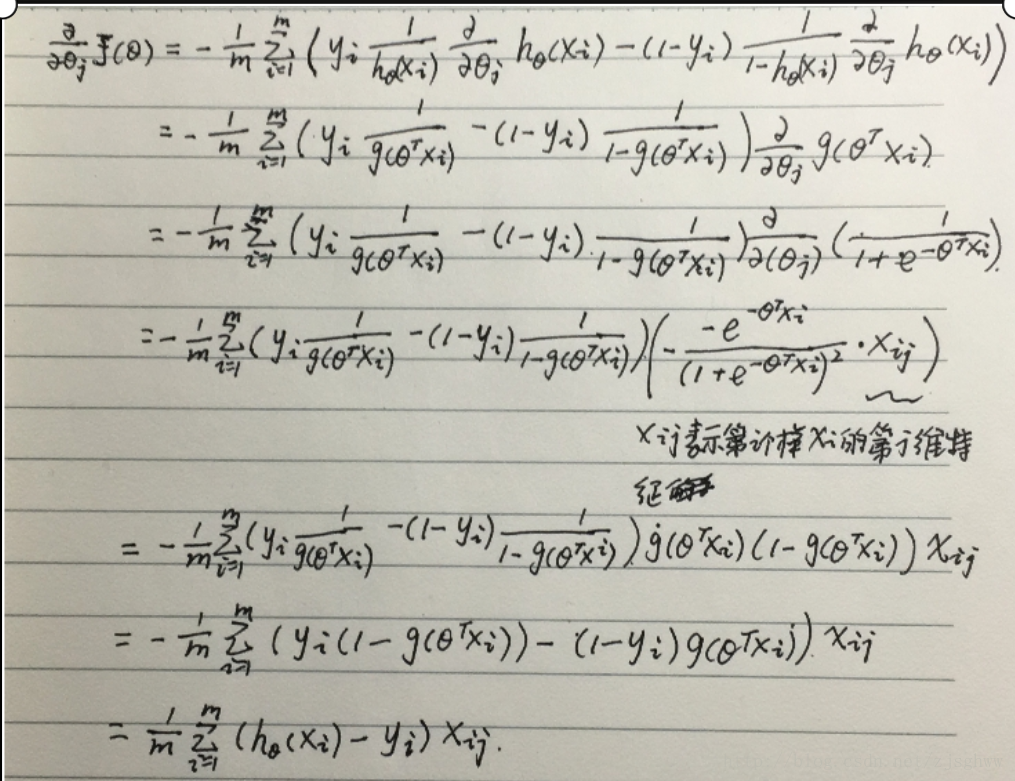 ∂/∂θⱼ J(θ) = - 1/m Σᵢ₌₁ᵐ ( yᵢ 1/h_θ(xᵢ) ∂/∂θⱼ h_θ(xᵢ) - (1-yᵢ) 1/(1-h_θ(xᵢ)) ∂/∂θⱼ h_θ(xᵢ) )
= - 1/m Σᵢ₌₁ᵐ ( yᵢ 1/g(θᵀxᵢ) - (1-yᵢ) 1/(1-g(θᵀxᵢ)) ) ∂/∂θⱼ g(θᵀxᵢ)
= - 1/m Σᵢ₌₁ᵐ ( yᵢ 1/g(θᵀxᵢ) - (1-yᵢ) 1/(1-g(θᵀxᵢ)) ) ∂/∂(θⱼ) ( 1/(1+e^(-θᵀxᵢ)) )
= - 1/m Σᵢ₌₁ᵐ ( yᵢ 1/g(θᵀxᵢ) - (1-yᵢ) 1/(1-g(θᵀxᵢ)) ) ( - (-e^(-θᵀxᵢ))/(1+e^(-θᵀxᵢ))² · xᵢⱼ )
xᵢⱼ表示第i个样xᵢ的第j维特
征
= - 1/m Σᵢ₌₁ᵐ ( yᵢ 1/g(θᵀxᵢ) - (1-yᵢ) 1/(1-g(θᵀxⁱ)) ) g(θᵀxᵢ) (1-g(θᵀxᵢ)) ) xᵢⱼ
= - 1/m Σᵢ₌₁ᵐ ( yᵢ (1-g(θᵀxᵢ)) - (1-yᵢ) g(θᵀxᵢ) ) xᵢⱼ
= 1/m Σᵢ₌₁ᵐ (h_θ(xᵢ) - yᵢ) xᵢⱼ.